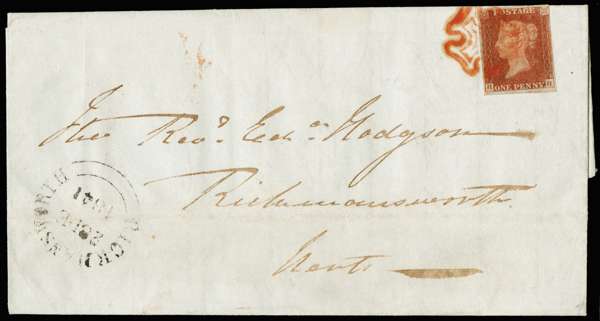 POSTAGE
ONE PENNY
The Revd. Edwd. Hodgson
Rickmansworth
Herts
1841